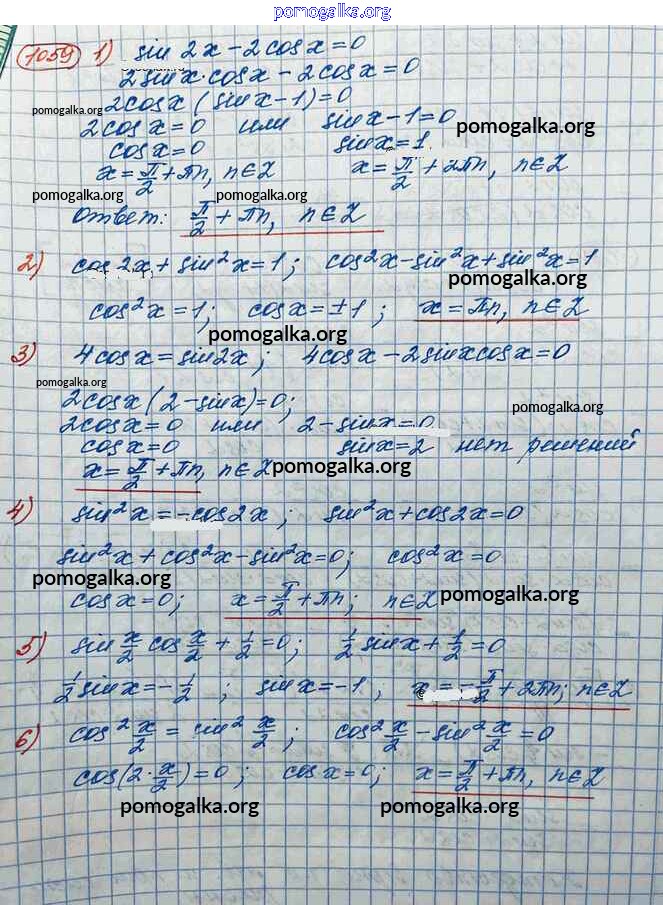 pomogalka.org
1059 1) sin 2x - 2cos x = 0
2 sin x · cos x - 2 cos x = 0
pomogalka.org
2cos x (sin x - 1) = 0
2cos x = 0 или sin x - 1 = 0
pomogalka.org
cos x = 0 sin x = 1
x = π/2 + πn, n ∈ Z x = π/2 + 2πn, n ∈ Z
pomogalka.org pomogalka.org
Ответ: π/2 + πn, n ∈ Z
2) cos 2x + sin²x = 1; cos²x - sin²x + sin²x = 1
pomogalka.org
cos²x = 1; cos x = ±1; x = πn, n ∈ Z
pomogalka.org
3) 4cos x = sin 2x; 4cos x - 2 sin x cos x = 0
pomogalka.org
2cos x (2 - sin x) = 0;
pomogalka.org
2cos x = 0 или 2 - sin x = 0
cos x = 0 sin x = 2 нет решений
x = π/2 + πn, n ∈ Z
pomogalka.org
4) sin²x = -cos 2x; sin²x + cos 2x = 0
sin²x + cos²x - sin²x = 0; cos²x = 0
pomogalka.org
cos x = 0; x = π/2 + πn; n ∈ Z
pomogalka.org
5) sin x/2 cos x/2 + 1/2 = 0; 1/2 sin x + 1/2 = 0
1/2 sin x = -1/2; sin x = -1, x = -π/2 + 2πn; n ∈ Z
6) cos² x/2 = sin² x/2; cos² x/2 - sin² x/2 = 0
cos(2 · x/2) = 0; cos x = 0; x = π/2 + πn, n ∈ Z
pomogalka.org pomogalka.org